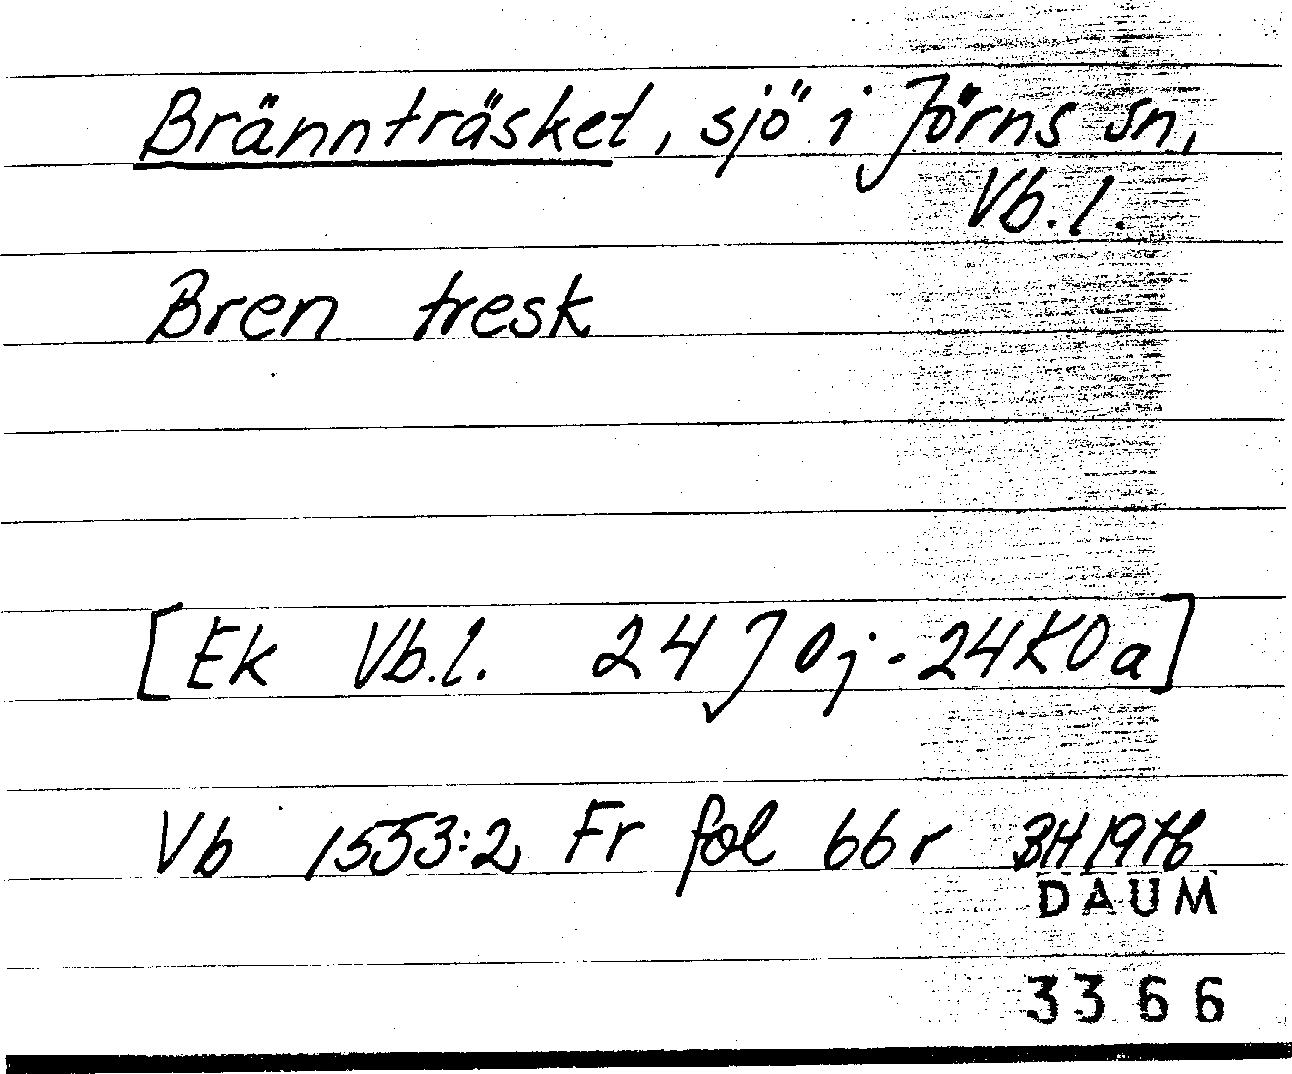 Brännträsket, sjö i Jörns sn,
Vb.l.
Bren tresk
[Ek Vb.l. 24 J 0j - 24 K 0 a]
Vb 1553:2 Fr fol 66 r BH 1976
DAUM
3366